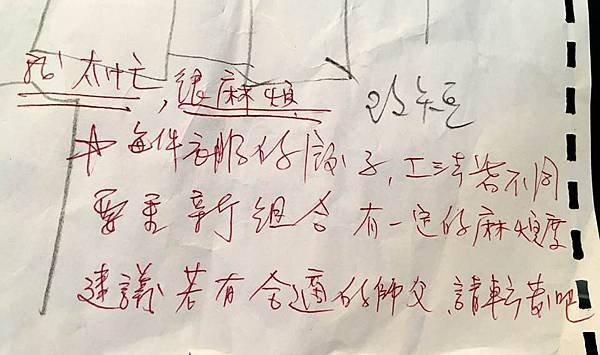 我太忙,很麻煩 改短
☆每件衣服的版子,工法皆不同
要重新組合 有一定的麻煩度
建議若有合適的師父,請轉吧